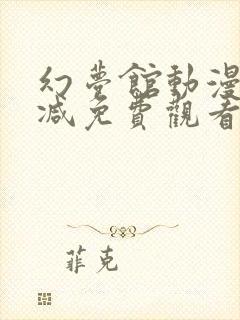 幻夢館動漫
减免費觀看
菲克